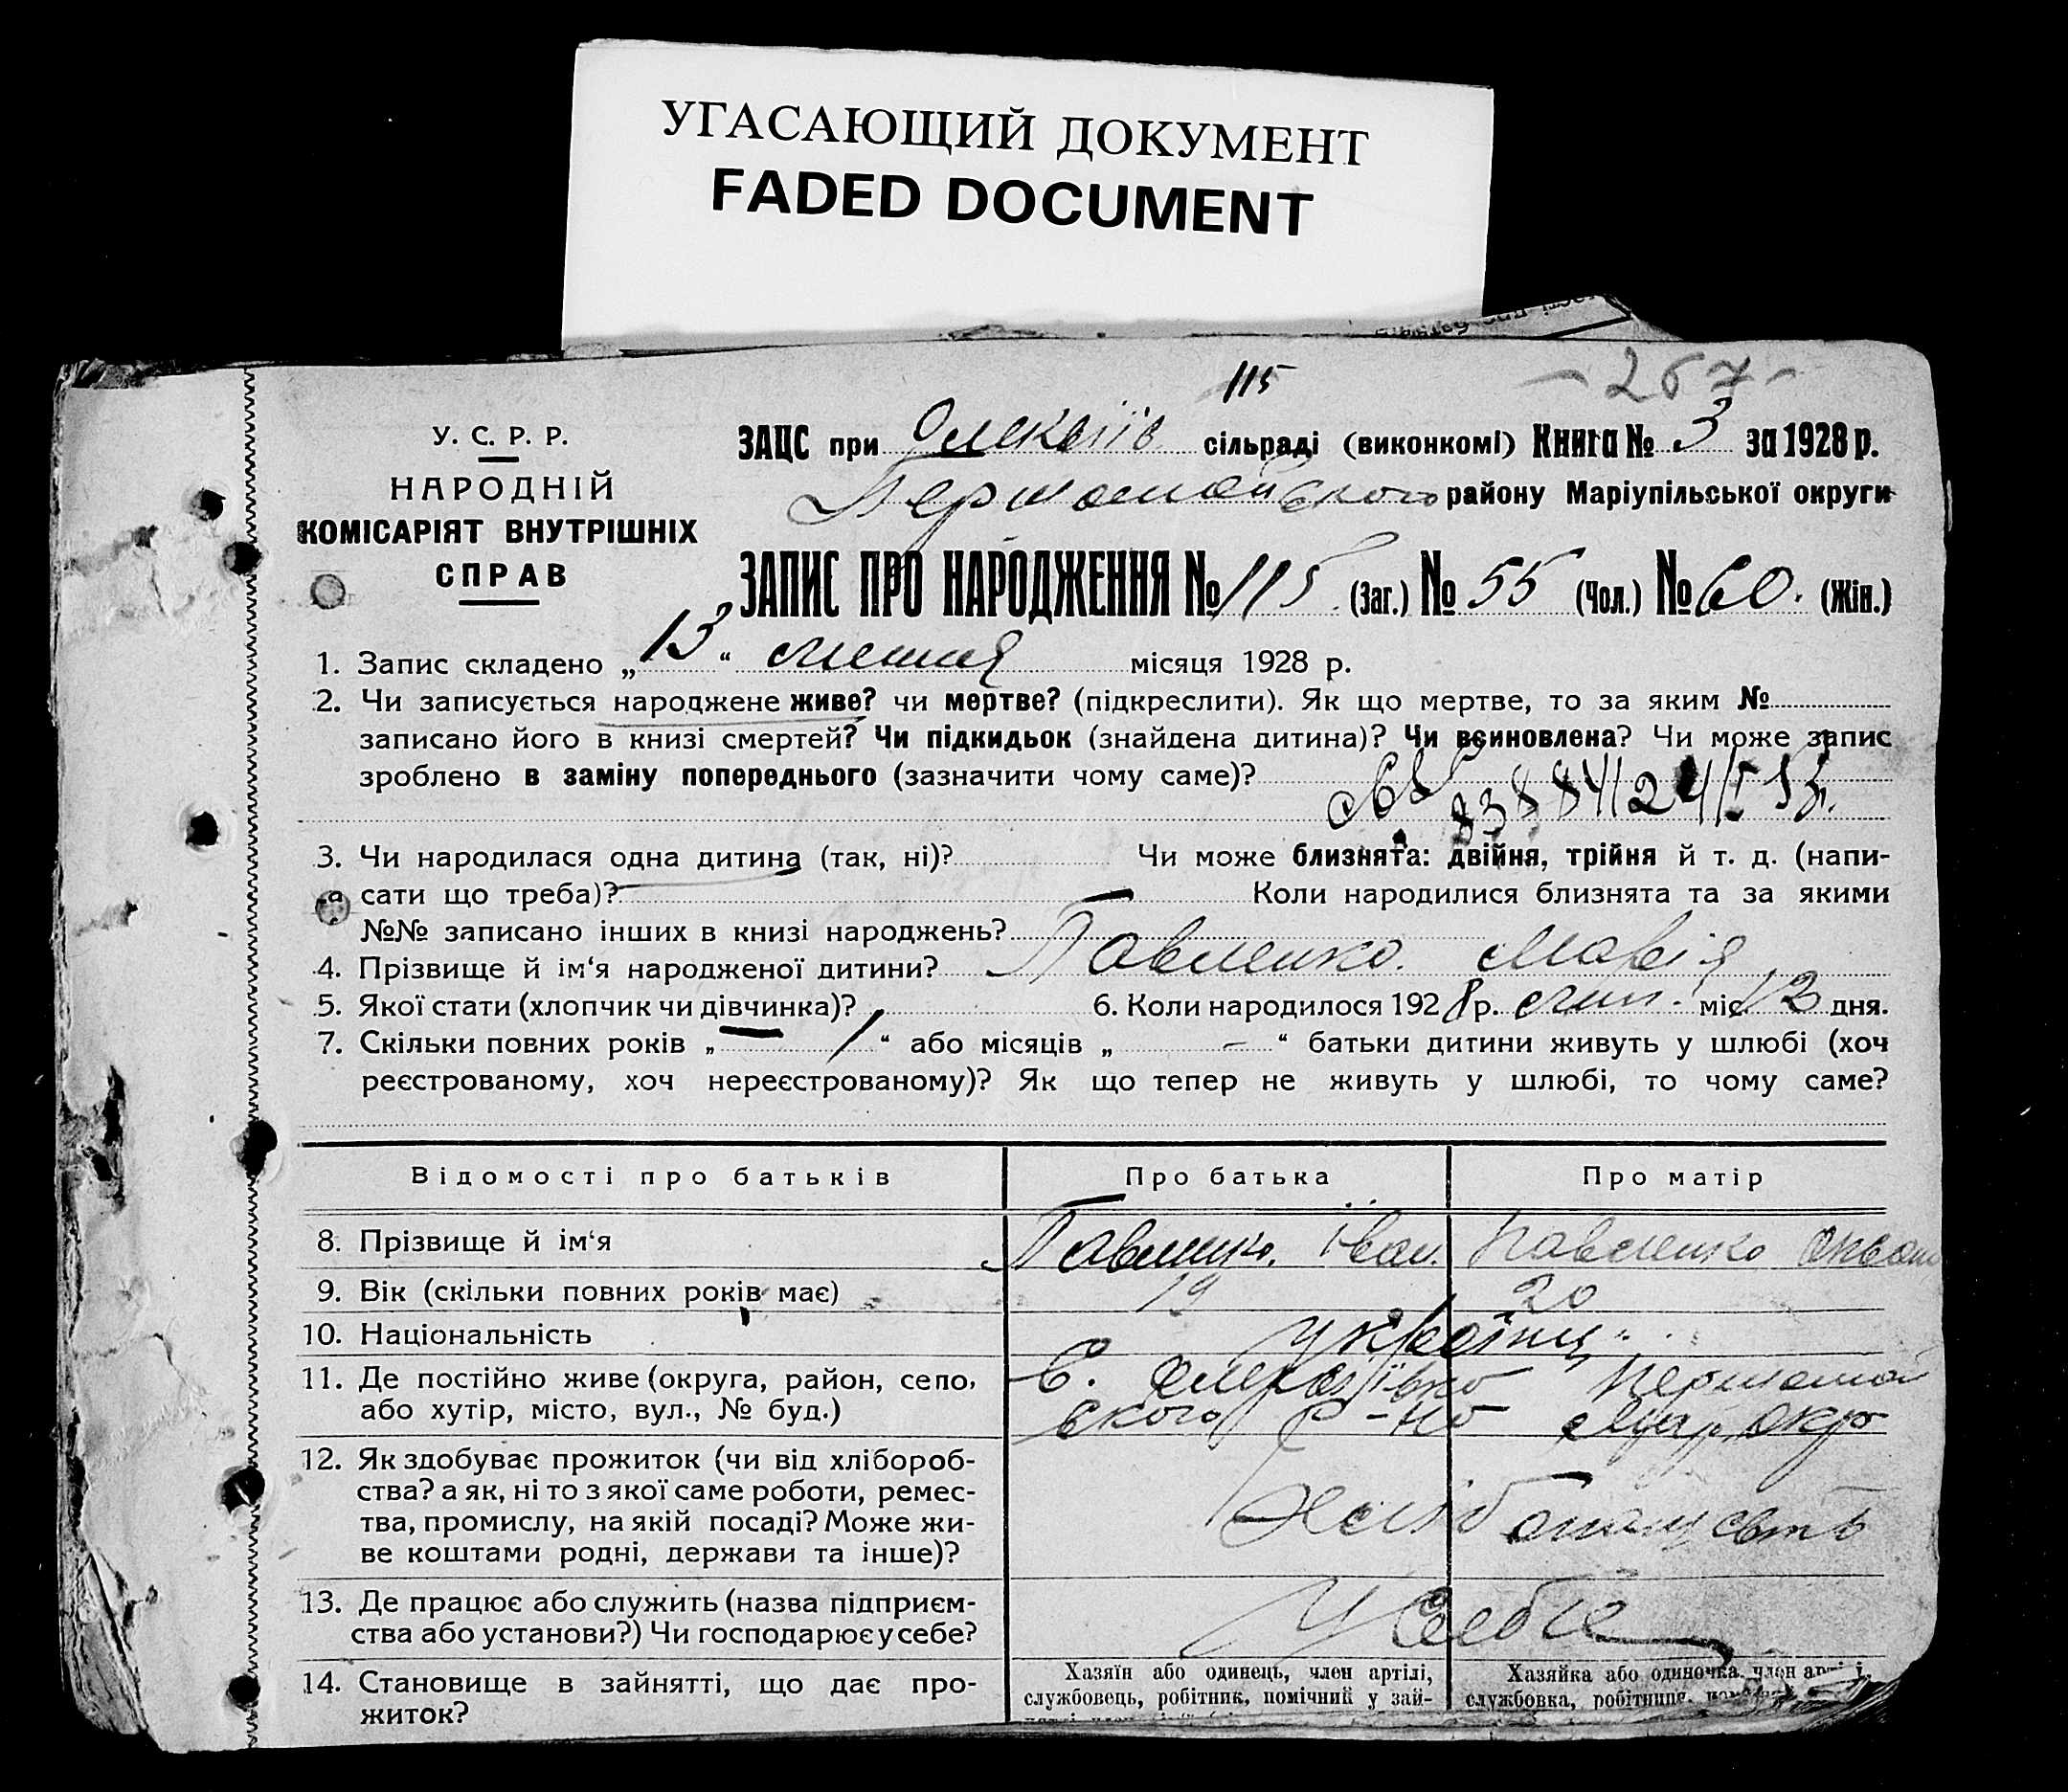 УГАСАЮЩИЙ ДОКУМЕНТ
FADED DOCUMENT
115
- 267 -
У. С. Р. Р.
НАРОДНІЙ
КОМІСАРІЯТ ВНУТРІШНІХ
СПРАВ
ЗАЦС при Олексіїв сільраді (виконкомі) Книга № 3 за 1928 р.
Першомайського району Маріупільської округи
ЗАПИС ПРО НАРОДЖЕННЯ № 115 (Заг.) № 55 (Чол.) № 60. (Жін.)
1. Запис складено „13“ липня місяця 1928 р.
2. Чи записується народжене живе? чи мертве? (підкреслити). Як що мертве, то за яким №
записано його в книзі смертей? Чи підкидьок (знайдена дитина)? Чи всиновлена? Чи може запис
зроблено в заміну попереднього (зазначити чому саме)?
3. Чи народилася одна дитина (так, ні)? Чи може близнята: двійня, трійня й т. д. (напи-
сати що треба)? Коли народилися близнята та за якими
№№ записано інших в книзі народжень?
4. Прізвище й ім‘я народженої дитини? Павленко Марія
5. Якої стати (хлопчик чи дівчинка)? 6. Коли народилося 1928 р. лип. міс 12 дня.
7. Скільки повних років „ 1 “ або місяців „ - “ батьки дитини живуть у шлюбі (хоч
реєстрованому, хоч нереєстрованому)? Як що тепер не живуть у шлюбі, то чому саме?
Відомості про батьків Про батька Про матір
8. Прізвище й ім‘я Павленко Іван. Павленко
9. Вік (скільки повних років має) 19 20
10. Національність Україн.
11. Де постійно живе (округа, район, село, С. Олексіївка Першомай
або хутір, місто, вул., № буд.) ського р-на Мар. окр
12. Як здобуває прожиток (чи від хлібороб-
ства? а як, ні то з якої саме роботи, ремес-
тва, промислу, на якій посаді? Може жи-
ве коштами родні, держави та інше)?
13. Де працює або служить (назва підприєм- У себе
ства або установи?) Чи господарює у себе?
14. Становище в зайнятті, що дає про-
житок?
Хазяїн або одинець, член артілі,
службовець, робітник, помічний у зай-
Хазяйка або одиночка, член арті і,
службовка, робітниця,